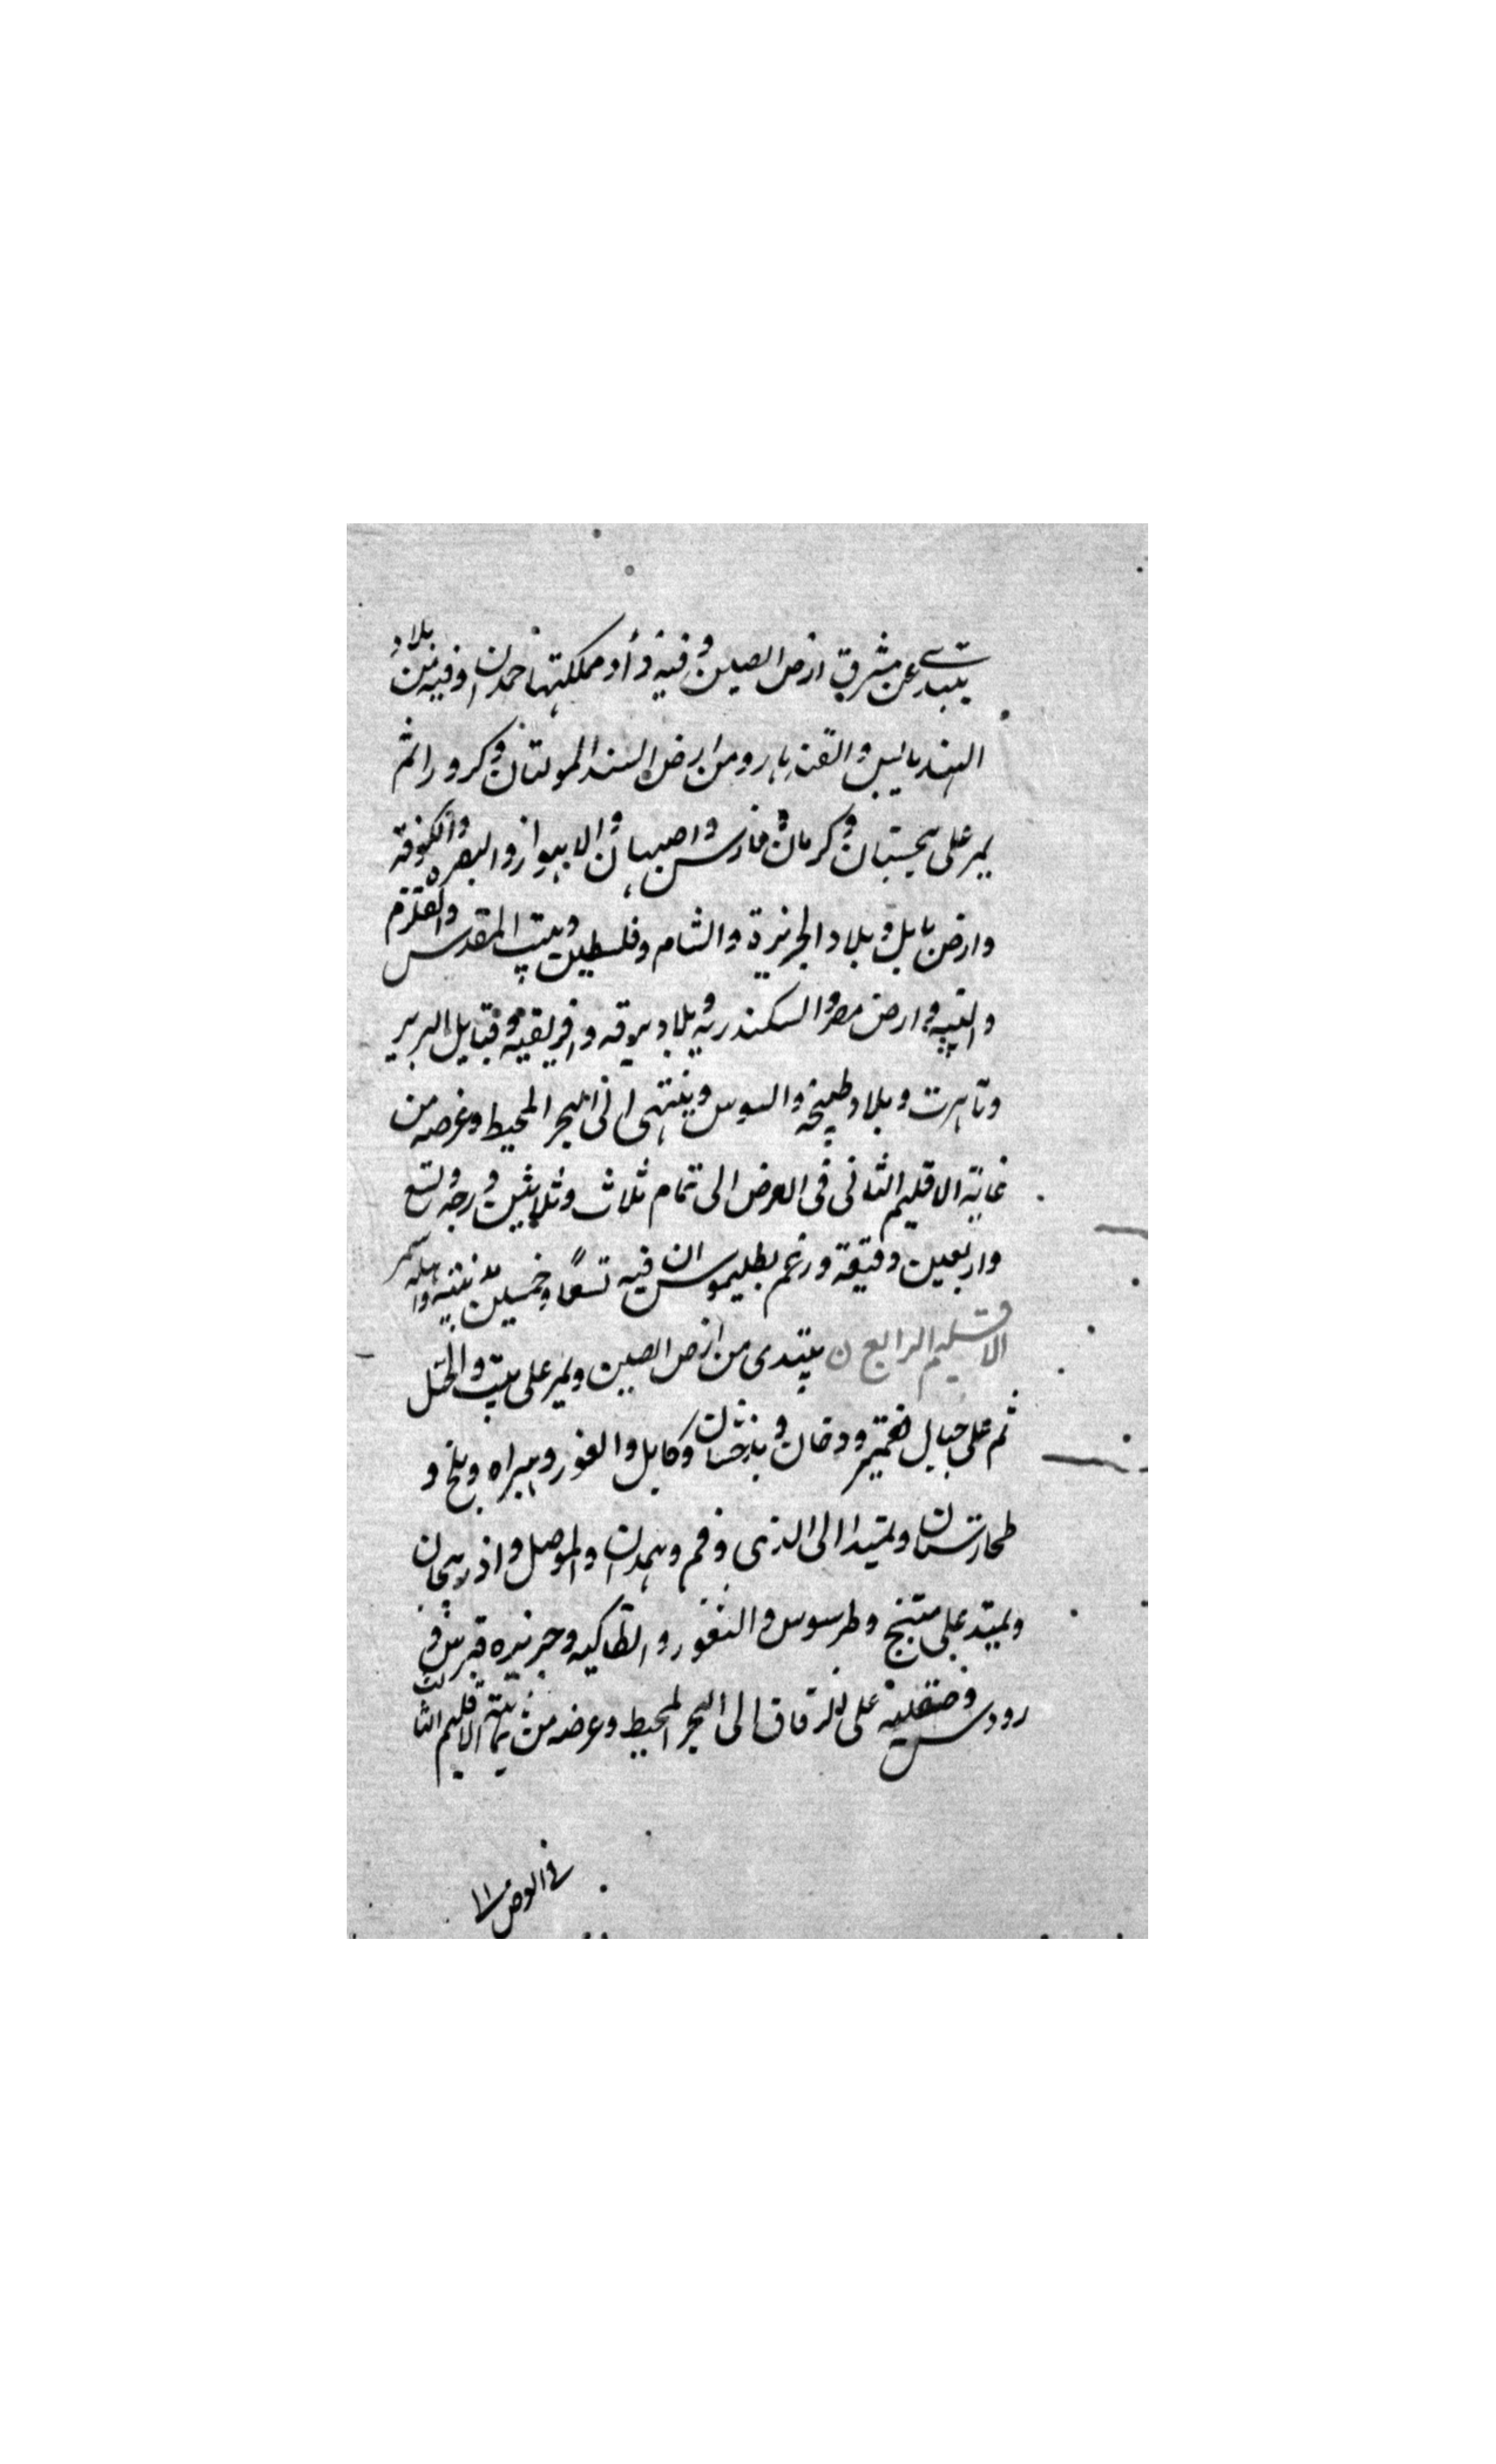 يبتدئ عن مشرق ارض الصين وفيه دار مملكتها حمدان وفيه من بلاد
الهند باليس والقندهار ومن ارض السند المولتان وكرور ثم
يمر على سجستان وكرمان فارس واصبهان والاهواز والبصره والكوفه
وارض بابل وبلاد الجزيرة والشام وفلسطين وبيت المقدس والقلزم
والتيه وارض مصر والسكندريه وبلاد برقه وافريقية وقبايل البربر
وتاهرت وبلاد طنجه والسوس وينتهى الى البحر المحيط وعرضه من
غاية الاقليم الثانى فى العرض الى تمام ثلاث وثلاثين درجه وتسع
واربعين دقيقة وزعم بطليموس ان فيه تسعًا وخمسين مدينة واهله سمر
الاقليم الرابع ن يبتدى من ارض الصين ويمر على تبت والختل
ثم على جبال كشمير ووخان وبذخشان وكابل والغور وهراه وبلخ و
طخارستان ويمتد الى الرى وقم وهمدان والموصل واذربيجان
ويمتد على منبج وطرسوس والثغور وانطاكيه وجزيره قبرس و
رودس وصقلية على الزقاق الى البحر المحيط وعرضه من نهاية الاقليم الثالث
فى العرض الى